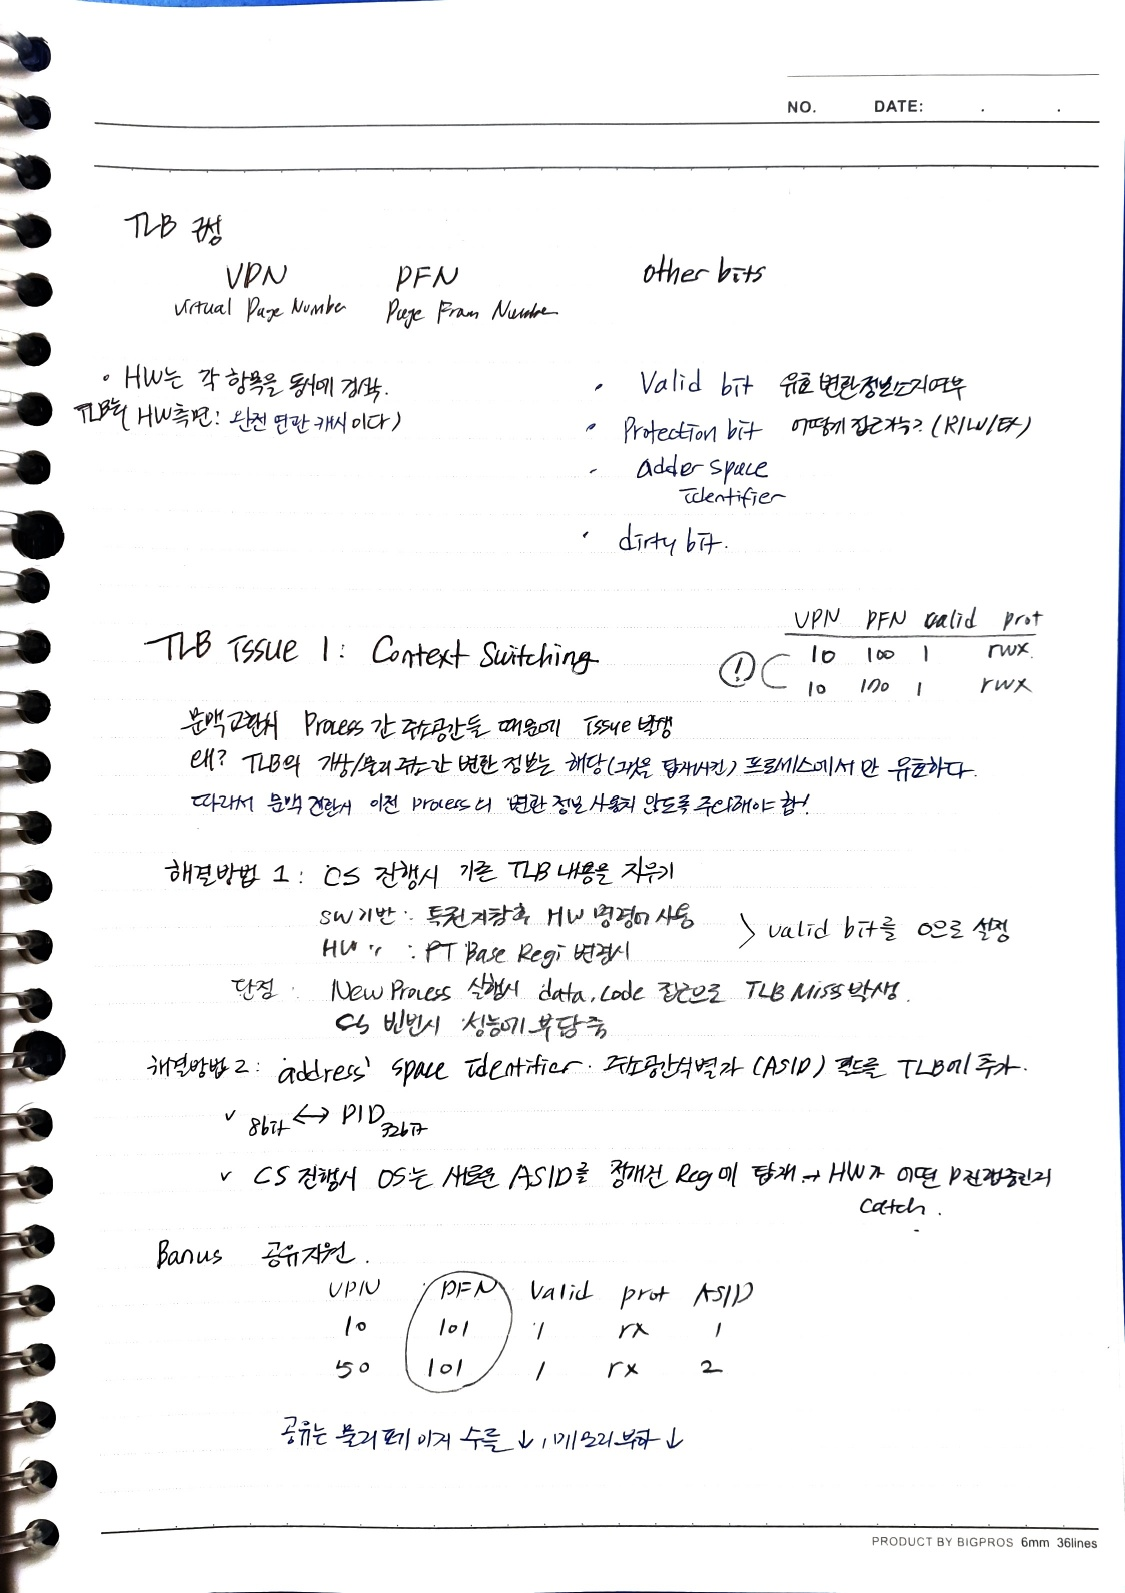 NO. DATE: . .
TLB 구성
VPN PFN other bits
Virtual Page Number Page Fram Number
• HW는 각 항목을 동시에 검색.
TLB는 HW측면: 완전 연관 캐시이다)
• Valid bit 유효 변환정보 여부
• Protection bit 어떻게 접근가능? (R/W/EX)
• adder space
Identifier
• dirty bit.
VPN PFN valid prot
10 100 1 rwx
10 170 1 rwx
TLB Issue 1: Context Switching
문맥교환시 Process 간 주소공간들 때문에 Issue 발생
왜? TLB의 가상/물리 주소간 변환 정보는 해당(그것을 탑재시킨) 프로세스에서만 유효하다.
따라서 문맥 전환시 이전 process의 변환 정보 사용치 않도록 주의해야 함!
해결방법 1: CS 진행시 기존 TLB 내용을 지우기
SW기반: 특권 HW 명령어 사용
HW〃: PT Base Regi 변경시
> valid bit를 0으로 설정
단점: New Process 실행시 data, code 접근으로 TLB Miss 발생.
CS 빈번시 성능에 부담 줌
해결방법 2: address space Identifier. 주소공간식별자 (ASID) 필드를 TLB에 추가.
v 8bit ↔ PID 32bit
v CS 진행시 OS는 새로운 ASID를 정해진 Reg에 탑재 → HW가 어떤 P 진행중인지
catch.
Banus 공유자원.
VPN PFN valid prot ASID
10 101 1 rx 1
50 101 1 rx 2
공유는 물리 페이지 수를 ↓, 메모리 부하 ↓
PRODUCT BY BIGPROS 6mm 36lines